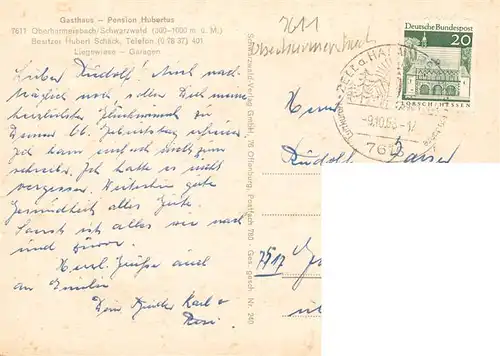 Gasthaus – Pension Hubertus
7611 Oberharmersbach/Schwarzwald (300–1000 m ü. M.)
Besitzer Hubert Schäck, Telefon (0 78 37) 401
Liegewiese – Garagen
Lieber Rudolf! Auch nach-
träglich noch sollen Dich meine
herzlichsten Glückwünsche zu
Deinem 66. Geburtstag erfreuen
Ich kam einfach nicht zum
schreiben. Ich habe es nicht
vergessen. Weiterhin gute
Gesundheit alles Gute.
Sonst ist alles wie nach
und zuvor.
Herzl. Grüße auch
an Emilie
Dein Karl u.
Rosi
Schwarzwald-Verlag GmbH., 76 Offenburg, Postfach 780 - Ges. gesch. Nr. 240
7611
Deutsche Bundespost
20
LORSCH/HESSEN
-9.10.68-17
7615
Herrn
Rudolf
7517